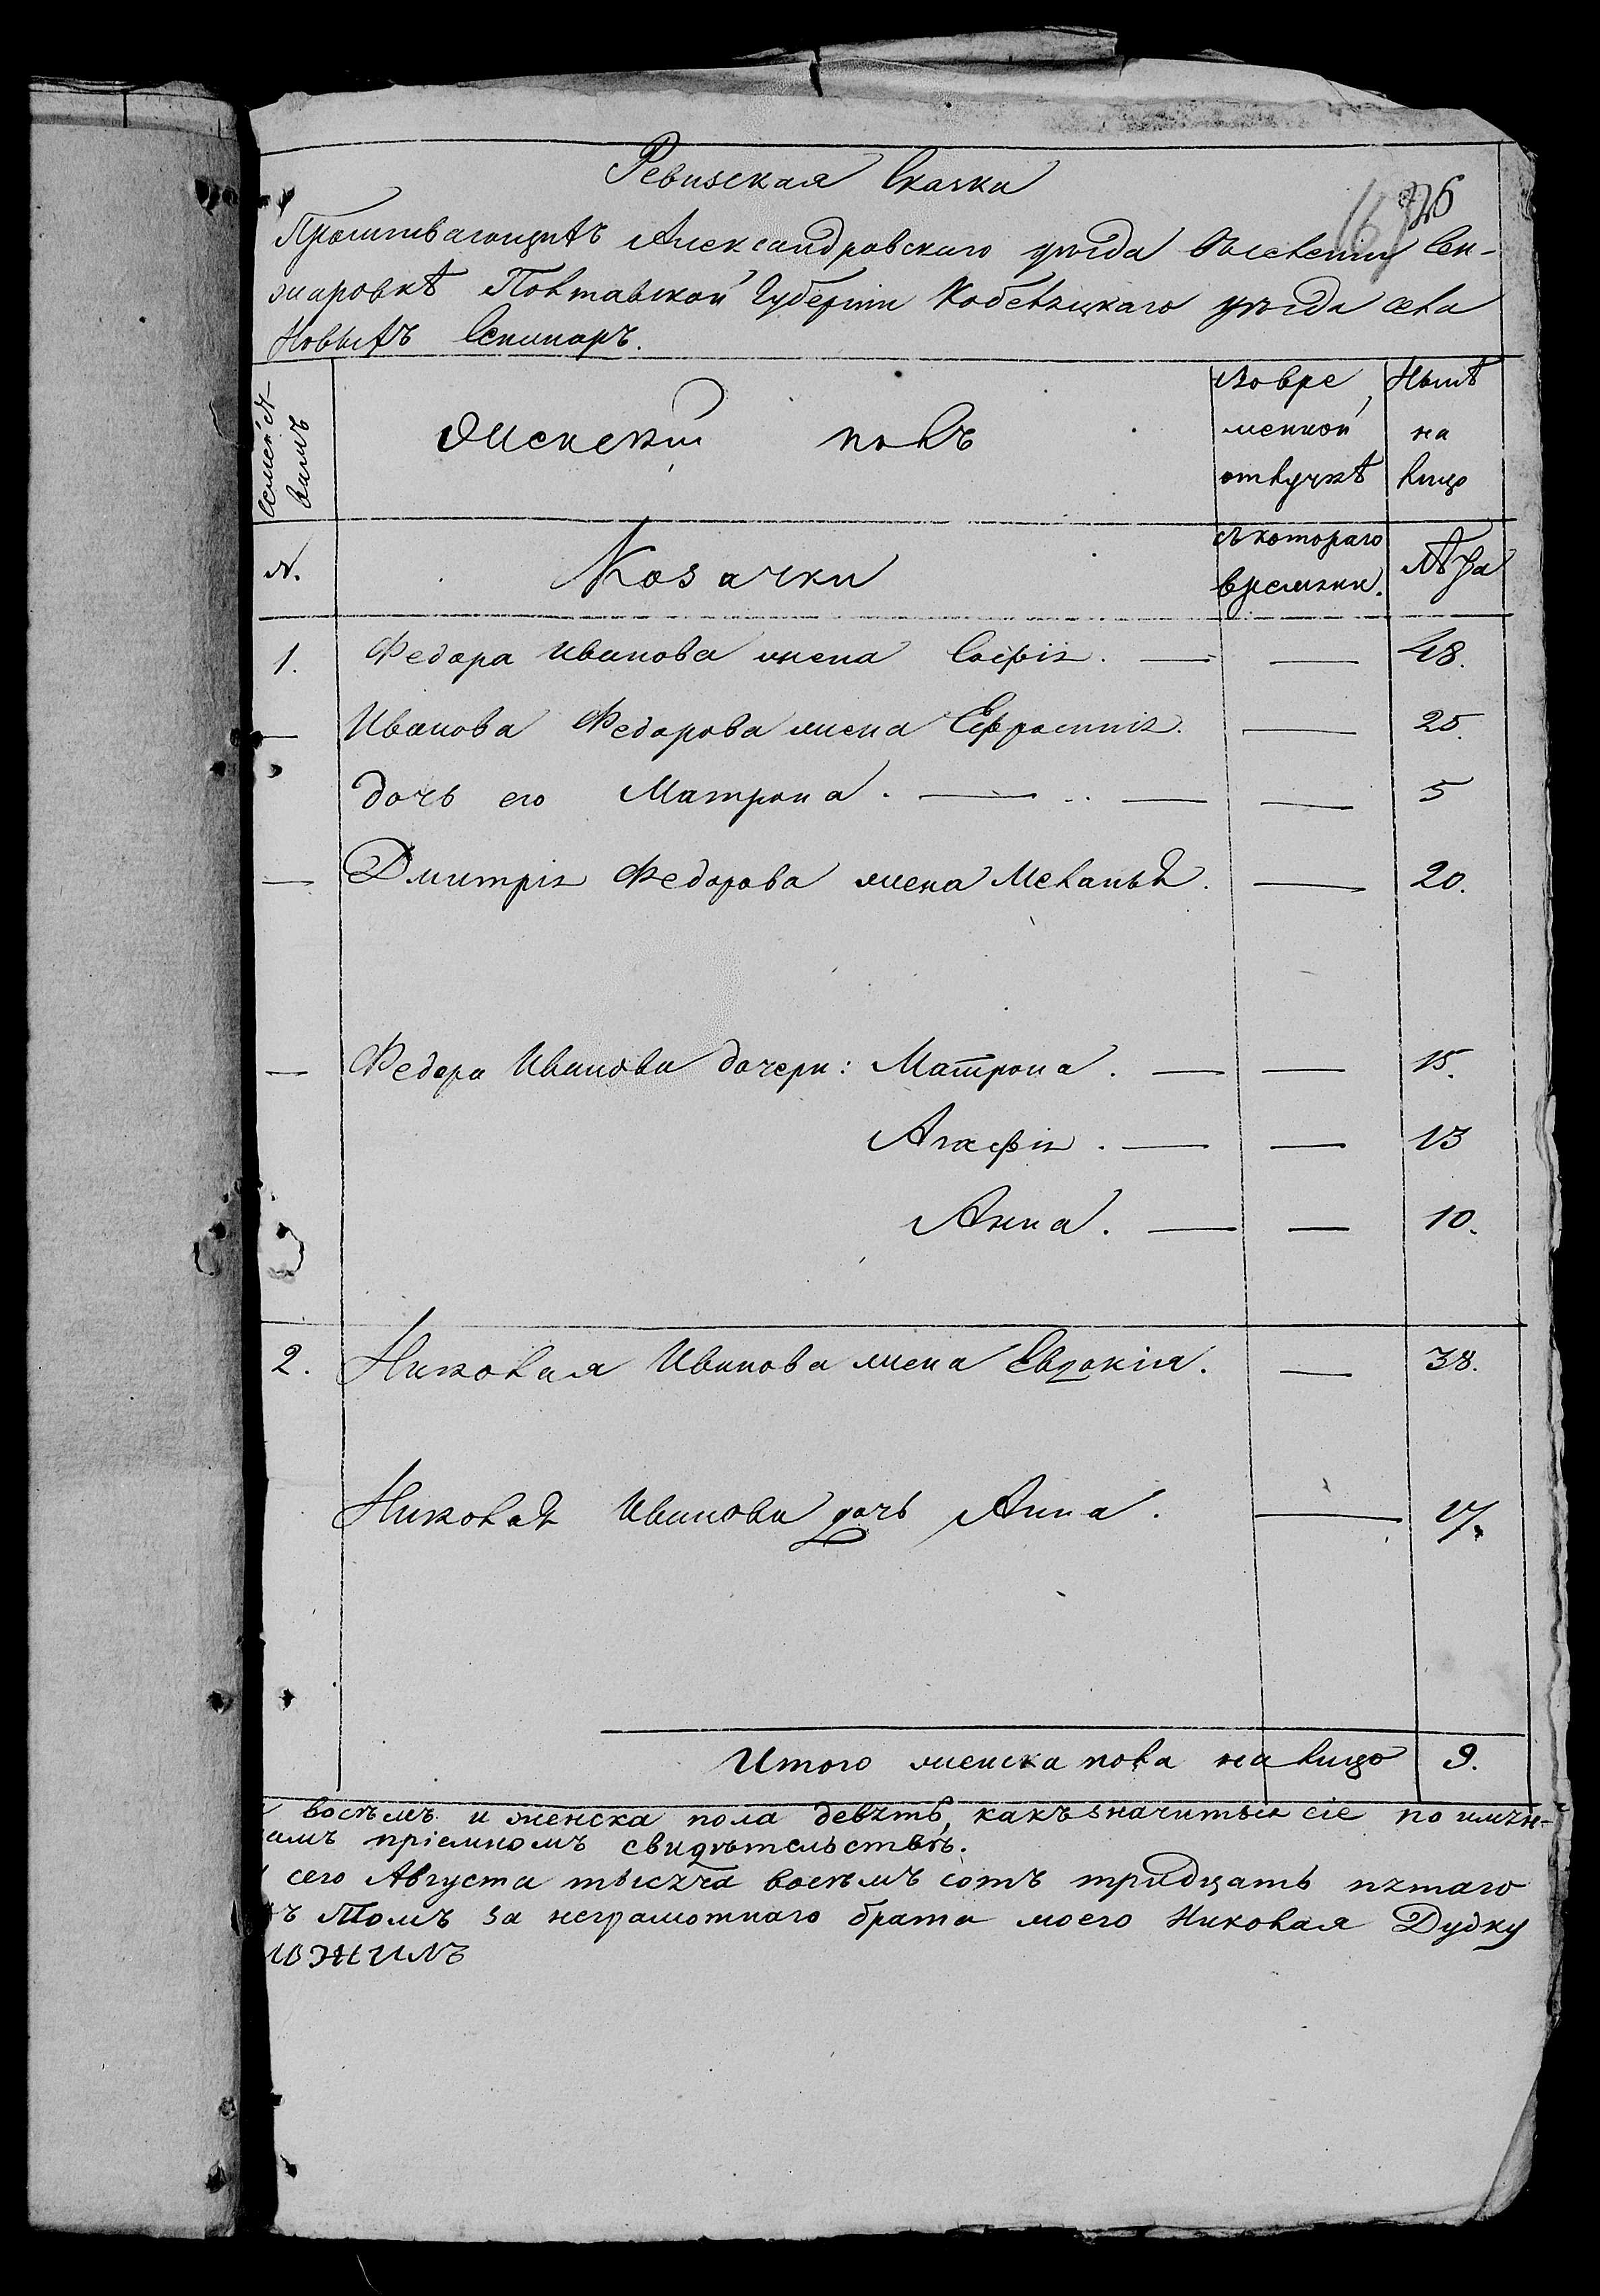 Ревизская Сказки
26
Проживающихъ Александровскаго уѣзда въ селеніи Сен-
жаровкѣ Полтавской Губерніи Кобеляцкаго уѣзда села
Новыхъ Сенжаръ.
Женскій полъ
Вовре
менной
отлучкѣ
Нынѣ
на
лицо
№.
Козачки
съ котораго
времяни.
Лѣта
1. Федора Иванова жена Софія. — — 48.
— Иванова Федорова жена Ефросинія. — 25.
дочь его Матрона. — .. — — 5
— Дмитрія Федорова жена Меланья. — 20.
— Федора Иванова дочери: Матрона. — — 15.
Агафія. — — 13
Анна. — — 10.
2. Николая Иванова жена Евдокія. — 38.
Николая Иванова дочь Анна. — 17.
Итого женска пола на лицо 9.
восѣмъ и женска пола девять, какъ значиться сіе по имѣн-
пріемномъ свидѣтельствѣ.
сего Августа тысяча восѣмъ сотъ тридцать пятаго
Томъ за неграмотнаго брата моего Николая Дудку
ложилъ